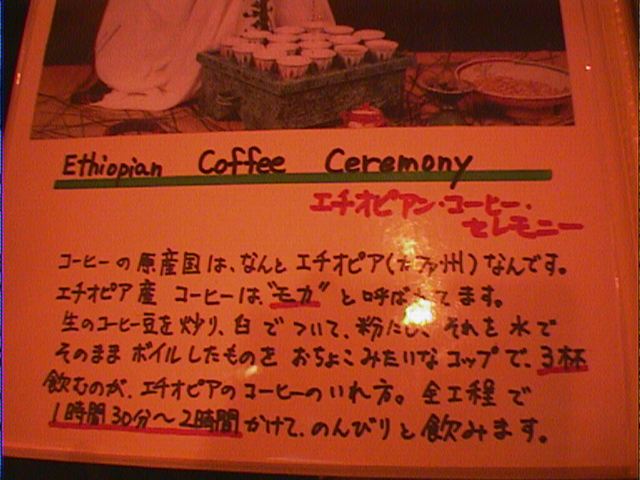 Ethiopian Coffee Ceremony
エチオピアン・コーヒー・
セレモニー
コーヒーの原産国は、なんとエチオピア(カファ州)なんです。
エチオピア産 コーヒーは、"モカ"と呼ばれてます。
生のコーヒー豆を炒り、臼でついて、粉にし、それを水で
そのままボイルしたものをおちょこみたいなコップで、3杯
飲むのが、エチオピアのコーヒーのいれ方。全工程で
1時間30分〜2時間かけて、のんびりと飲みます。